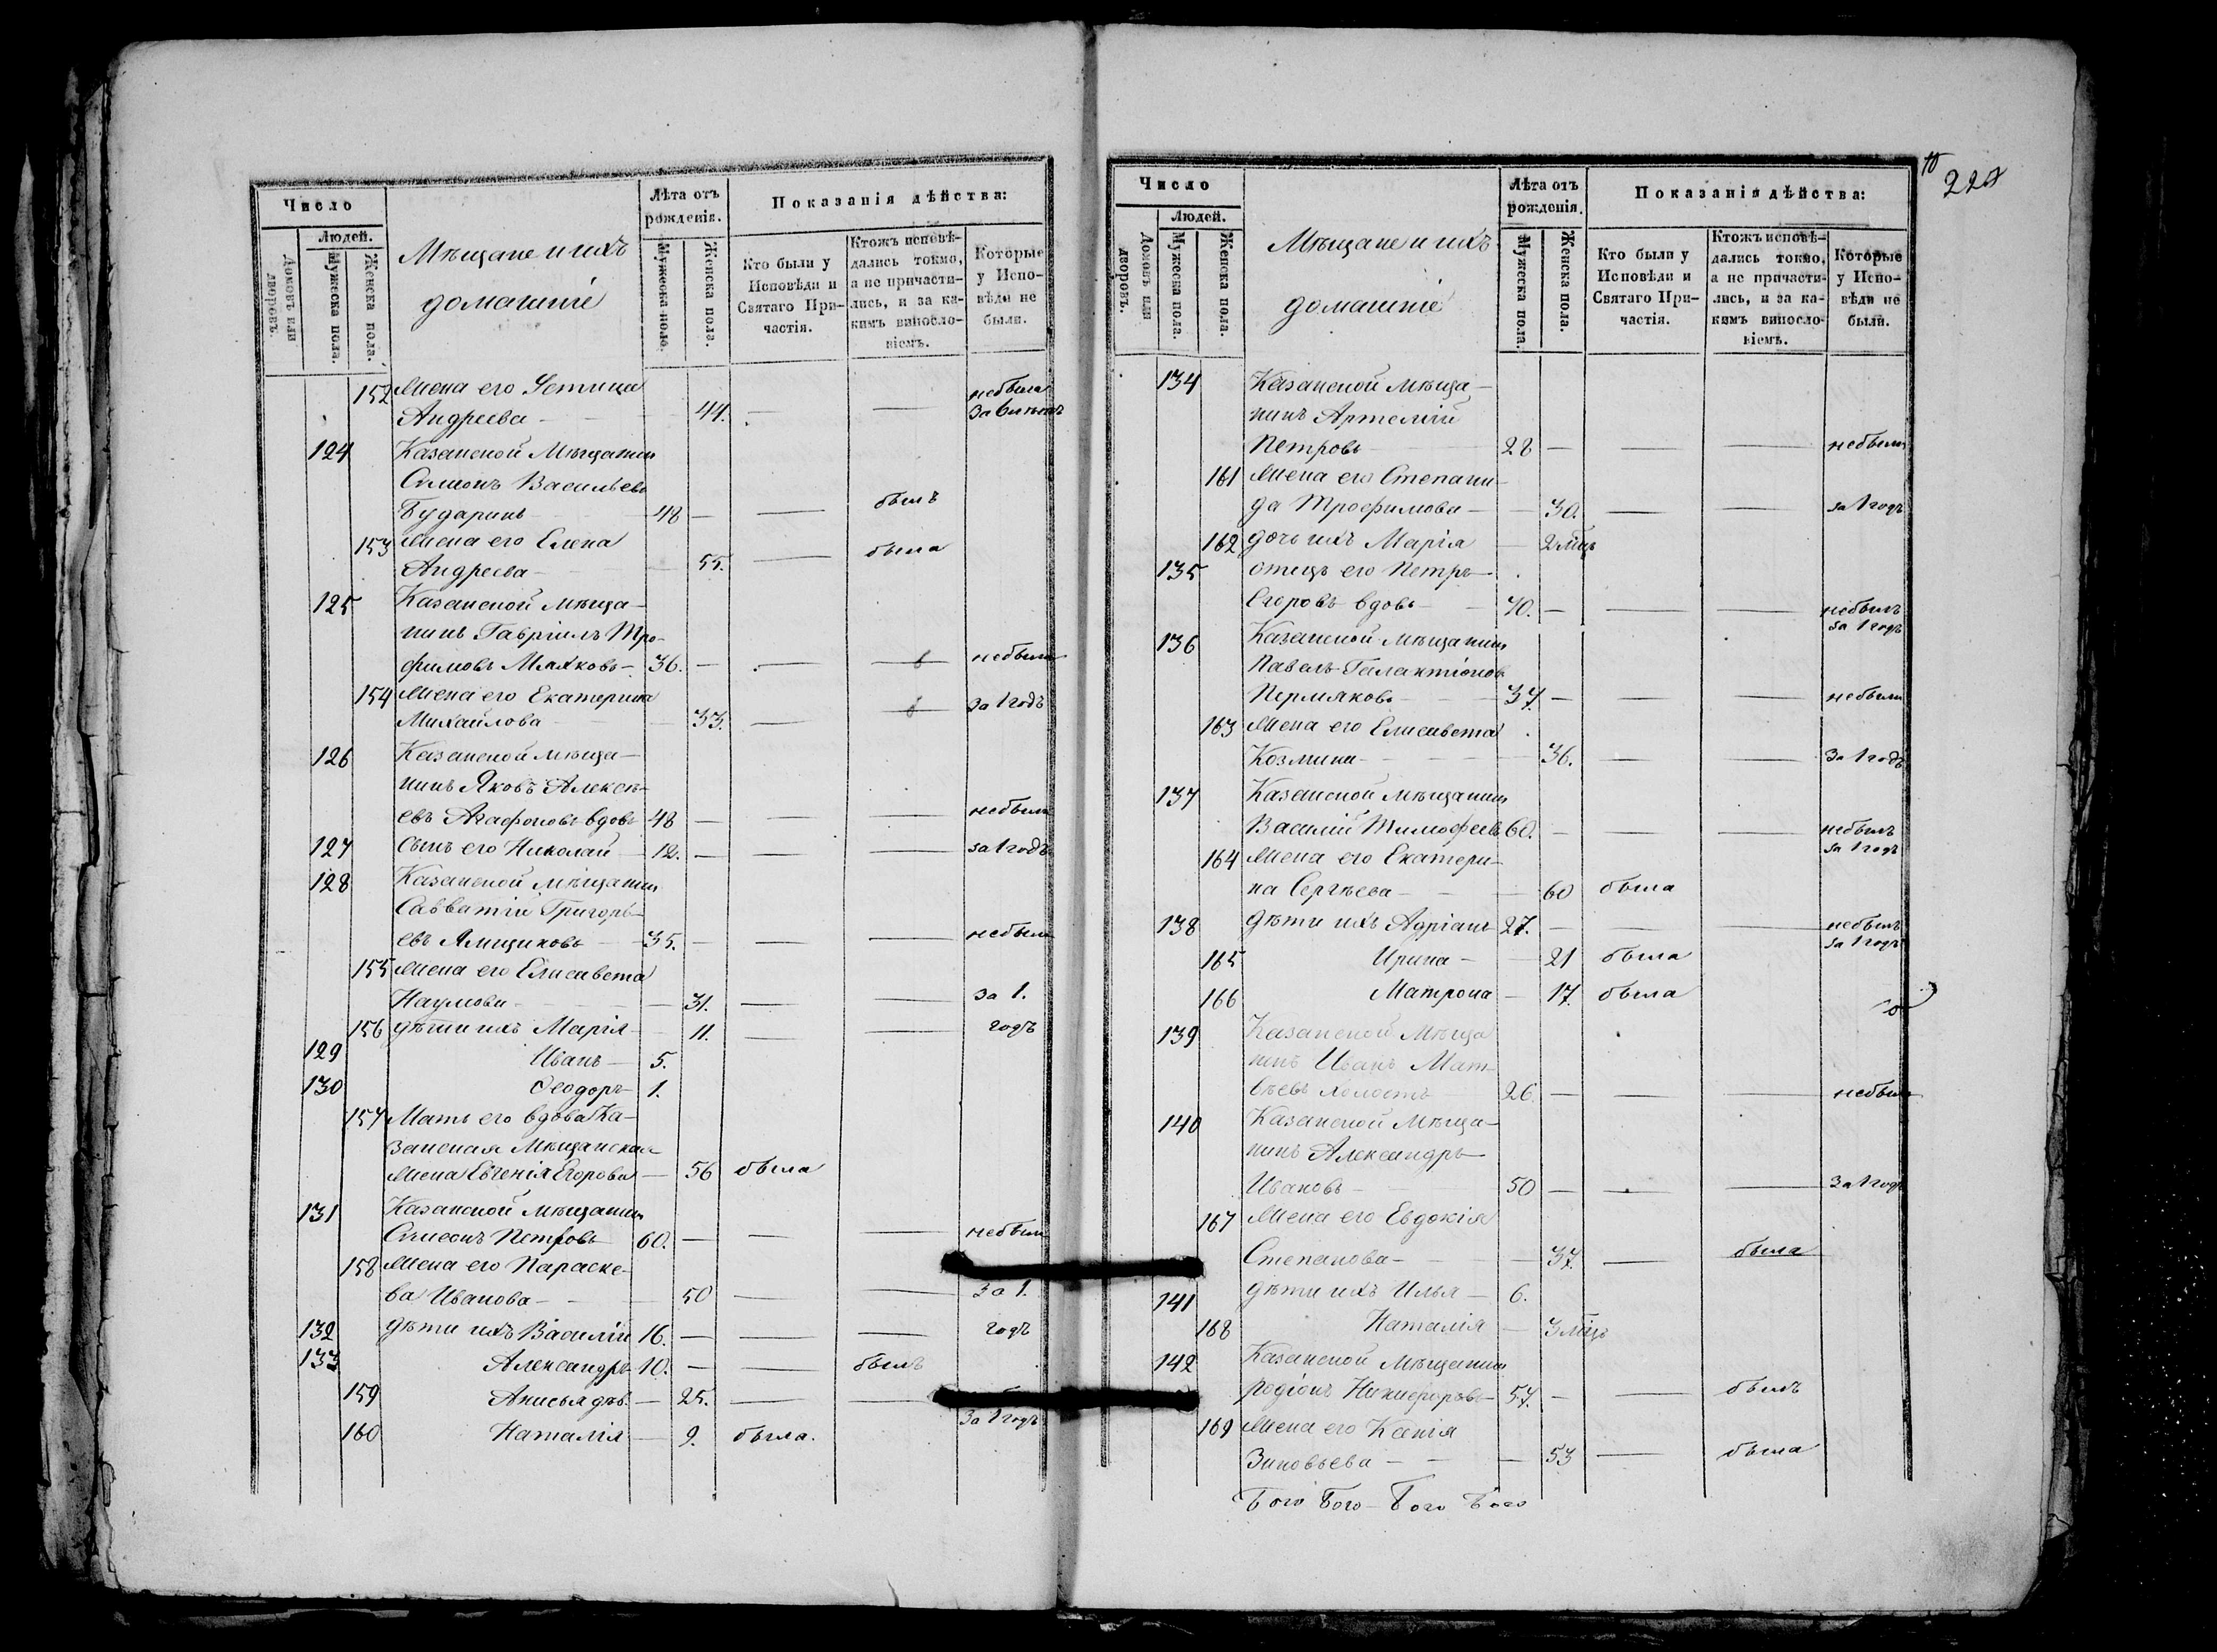 Число
Людей.
Домовъ или дворовъ.
Мужеска пола.
Женска пола.
Мѣщане и ихъ
домашніе
Лѣта отъ
рожденія.
Мужеска полю.
Женска пола.
Показанія дѣйства:
Кто были у
Исповѣди и
Святаго При-
частія.
Ктожъ исповѣ-
дались токмо,
а не причасти-
лись, и за ка-
кимъ виносло-
віемъ.
Которые
у Испо-
вѣди не
были.
152 Жена его Устинья небыла
Андреева — 44. — —
124 Казанской Мѣщанинъ
Симеонъ Васильевъ
Бударинъ 48 — — былъ
153 Жена его Елена
Андреева — 55. — была
125 Казанской мѣща-
нинъ Гавріилъ Тро-
фимовъ Мяхковъ 36. — — — небыли
154 Жена его Екатерина
Михайлова — 33. — — за 1 годъ
126 Казанской мѣща-
нинъ Яковъ Алексѣ-
евъ Агафоновъ вдовъ 48 — — — небыли
127 Сынъ его Николай 12. — — — за 1 годъ
128 Казанской мѣщанинъ
Савватій Григорь-
евъ Ямщиковъ 35. — — — небыли
155 Жена его Елисавета
Наумова — 31. — — за 1.
156 дѣти ихъ Марія — 11. — — годъ
129 Иванъ — 5.
130 Ѳеодоръ — 1.
157 Мать его вдова Ка-
занская Мѣщанская
жена Евгенія Егорова — 56 была
131 Казанской мѣщанинъ
Симеонъ Петровъ 60. — — — небыли
158 Жена его Параске-
ва Иванова — — 50 — — за 1.
132 дѣти ихъ Василій 16. — — — годъ
133 Александръ 10. — — былъ
159 Анисья дѣв. — 25. — — за 1 годъ
160 Наталія — 9. была.
Число
Людей.
Домовъ или дворовъ.
Мужеска пола.
Женска пола.
Мѣщане и ихъ
домашніе
Лѣта отъ
рожденія.
Мужеска пола.
Женска пола.
Показанія дѣйства:
Кто были у
Исповѣди и
Святаго При-
частія.
Ктожъ исповѣ-
дались токмо,
а не причасти-
лись, и за ка-
кимъ виносло-
віемъ.
Которые
у Испо-
вѣди не
были.
134 Казанской мѣща-
нинъ Артемій
Петровъ 28 — — — небыли
161 Жена его Степани-
да Трофимова — 30. — — за 1 годъ
162 дочь ихъ Марія — 2 мѣц
135 отецъ его Петръ
Егоровъ вдовъ 70. — — — небылъ
за 1 годъ
136 Казанской мѣщанинъ
Павелъ Галактіоновъ
Пермяковъ 37. — — — небыли
163 Жена его Елисавета
Козмина — 36. — — за 1 годъ
137 Казанской мѣщанинъ
Василій Тимофеевъ 60. — — — небылъ
за 1 годъ
164 Жена его Екатери-
на Сергѣева — — 60 была
138 дѣти ихъ Адріанъ 27. — — — небылъ
за 1 годъ
165 Ирина — 21 была
166 Матрона — 17. была
139 Казанской Мѣща
нинъ Иванъ Мат-
вѣевъ холостъ 26. — — — небыли
140 Казанской Мѣща-
нинъ Александръ
Ивановъ — 50 — — — за 1 годъ
167 Жена его Евдокія
Степанова — 37. — была
141 дѣти ихъ Илья — 6.
168 Наталія — 3 мѣц
142 Казанской мѣщанинъ
Родіонъ Никифоровъ 57. — — былъ
169 Жена его Ксенія
Зиновьева — — 53 — была